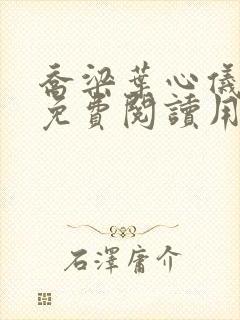 喬梁葉心儀
免費閱讀用
石澤庸介